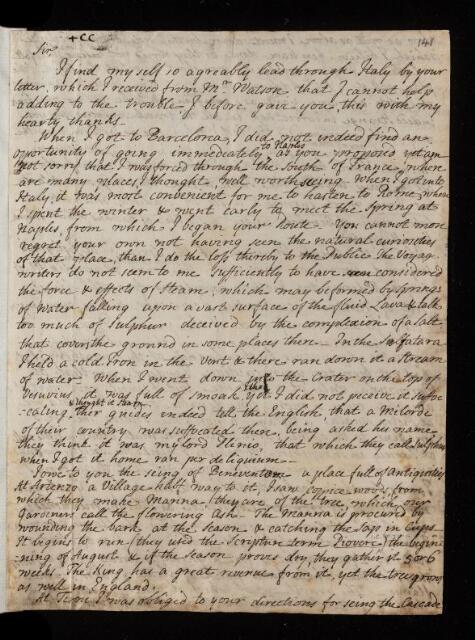 +CC
148
Sir
I find my self so agreably lead through Italy by your
letter, which I received from Mr Watson that I cannot help
adding to the trouble I before gave you, this with my
hearty thanks.
When I got to Barcelona, I did not indeed find an
opportunity of going immediately to Naples as you proposed yet am
not sorry that I was forced through the South of France, where
are many places, I thought, well worth seeing. When I got into
Italy, it was most convenient for me to hasten to Rome, where
I spent the winter & went early to meet the Spring at
Naples, from which I began your Route. You cannot more
regret your own not having seen the natural curiosities
of that place, than I do the loss thereby to the Publick. The Voyag-
writers do not seem to me sufficiently to have considered
the force & effects of Steam, which may be formed by springs
of water falling upon a vast surface of the fluid Lava & talk
too much of Sulphur deceived by the complexion of a Salt
that covers the ground in some places there. In the Solfatara
I held a cold Iron in the Vent & there ran down it a Stream
of water. When I went down into the Crater on the top of
Vesuvius, it was full of smoak, yet I did not perceive it suffo-
-cating, & thought it Steam, their guides indeed tell the English, that a Milorde
of their country was suffocated there. being asked his name
they think it was my lord Ilenio, that which they call Sulphur
when I got it home ran per deliquium
I owe to you the seing of Benevento a place full of Antiquities
At a Village half way to it, I saw copice woods, from
which they make Manna (they are of the tree, which our
Gardeners call the flowering Ash. The Manna is procured by
wounding the bark at the season & catching the Sap in Cups
It begins to run (they used the Scripture term Piovere) the begin-
-ning of August & if the season proves dry, they gather it 5 or 6
weeks. The King has a great revenue from it, yet the tree grows
as well in England.
At I was obliged to your directions for seing the Cascade